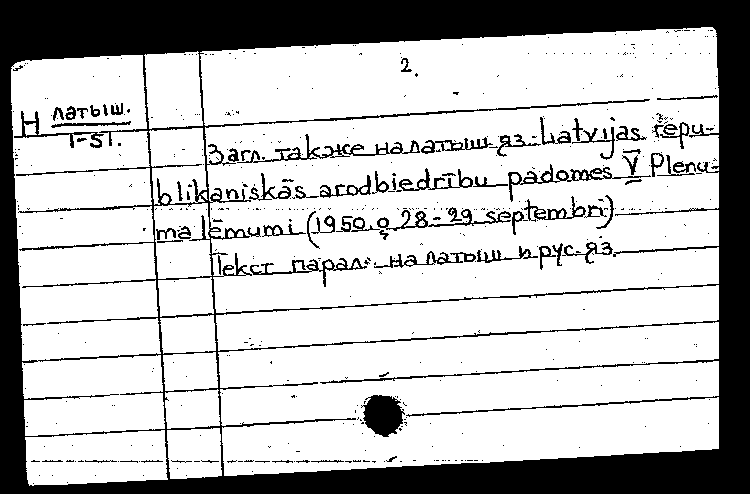 2.
Н латыш.
1-51.
Загл. также на латыш. яз. Latvijas repu-
blikāniskās arodbiedrību padomes V Plenu-
ma lēmumi (1950. g. 28-29. septembrī)
Текст парал. на латыш. и рус. яз.